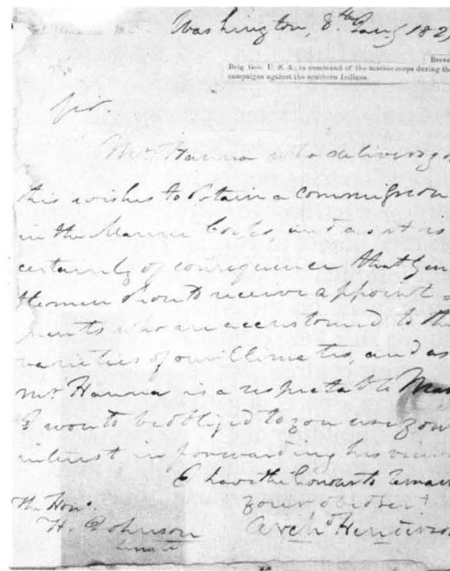 Washington, 8th Jany 182
Brevet
Brig. Gen. U. S. A., in command of the marine corps during the
campaigns against the southern Indians.
Sir
Mr Hanna who delivers yo
this wishes to obtain a commission
in the Marine Corps and as it is
certainly of consequence that Gen
tlemen should receive appoint=
ments who are accustomed to the
varieties of our Climates, and as
Mr Hanna is a respectable Man
I would be obliged to you use your
interest in forwarding his views
I have the honour to remain
your obedt
The Honl.
H. Johnson
Senate
Archd Henderson